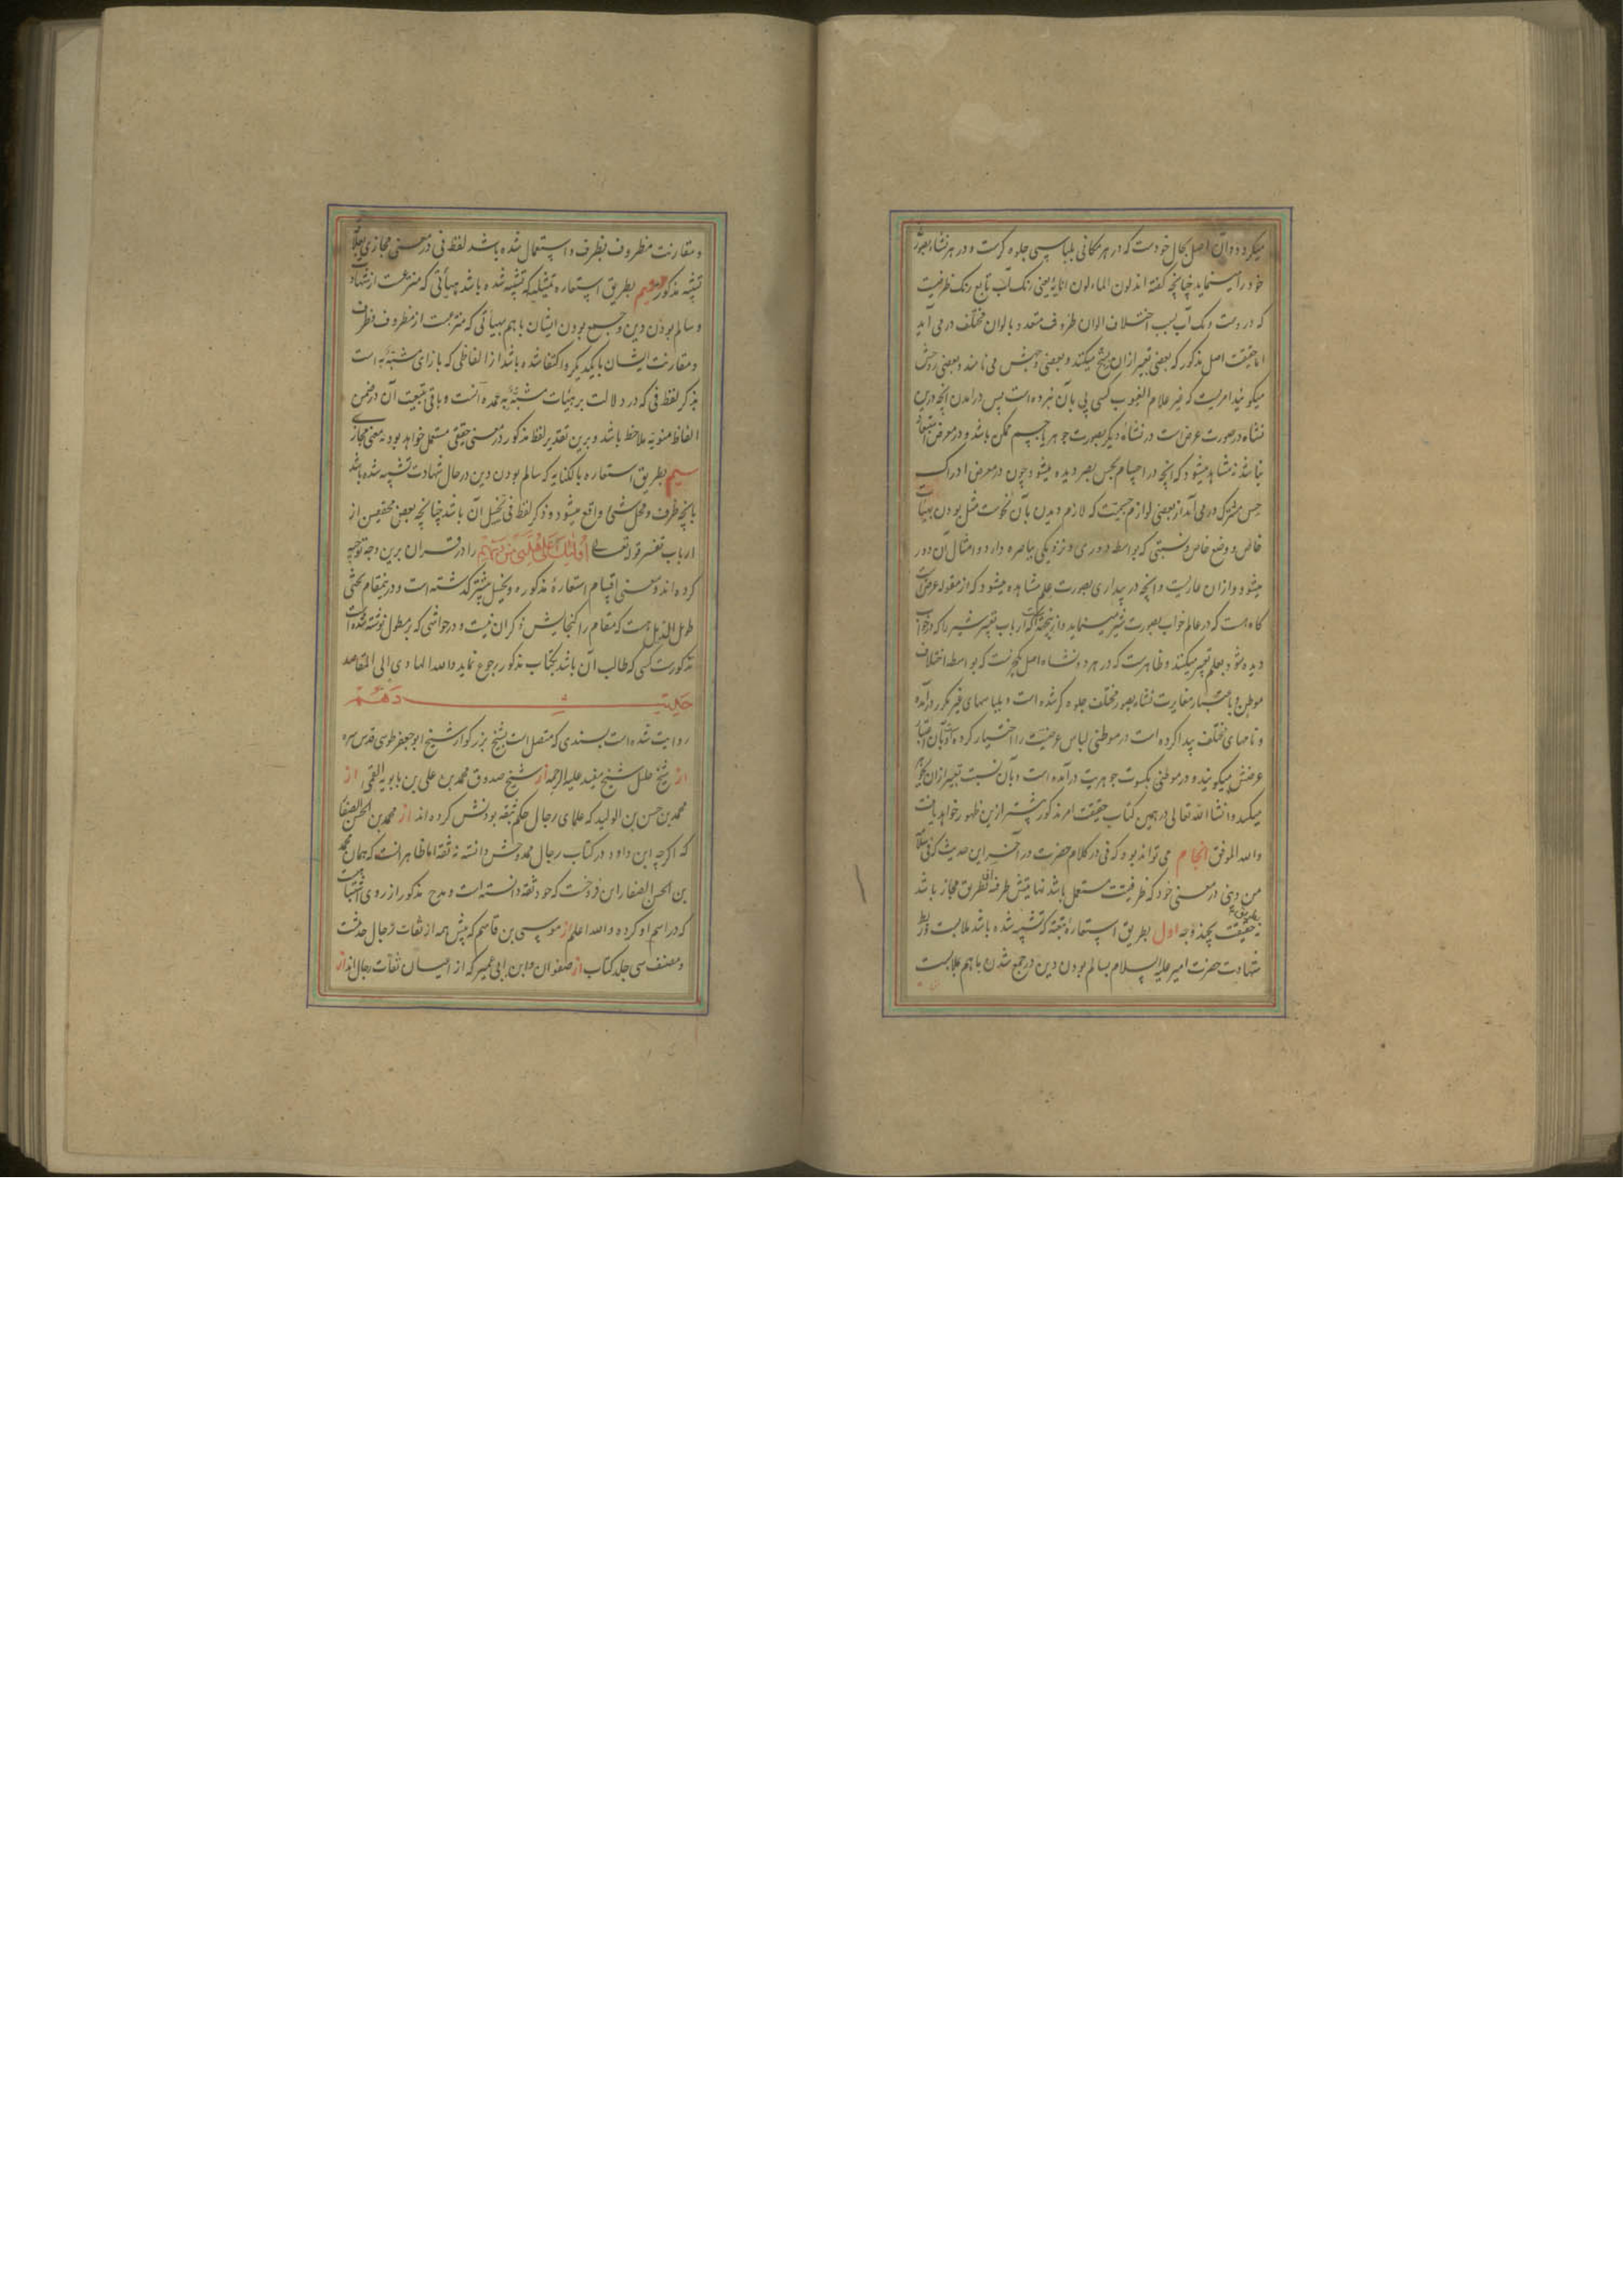 میکردد و آن اصل بحال خودست که در هر مکانی بلباسی جلوه کرست و در هر نشاه بصورتی
خود را مینماید چنانچه گفته اند لون الماء لون انائه یعنی رنک آب تابع رنک ظرفیست
که در وست و یک آب بسبب اختلاف الوان ظروف متعدد بالوان مختلف در می آید
اما حقیقت اصل مذکور که بعضی تعبیر ازان بسنخ میکنند و بعضی وجهش می نامند و بعضی روحش
میکویند امریست که غیر علام الغیوب کسی پی بآن نبرده است پس در آمدن آنچه درین
نشاه در صورت عرض است در نشاه دیکر بصورت جوهر یا جسم ممکن باشد و در معرض استبعاد
نباشد نه مشاهد میشود که آنچه در اجسام بحس بصر دیده میشود چون در معرض ادراک
حس مشترک در می آید از بعضی لوازم جسمیت که لازم دیدن بآن نحوست مثل بودن بهیأت
خاص و وضع خاص و نسبتی که بواسطه دوری و نزدیکی بباصره دارد و امثال آن دور
میشود و ازان عاریست و آنچه در بیداری بصورت علم مشاهده میشود که از مقوله عرض است
کاه هست که در عالم خواب بصورت شیر مینماید و ازینجهت است که ارباب تعبیر شیر را که در خواب
دیده شود بعلم تعبیر میکنند و ظاهرست که در هر دو نشاه اصل یکچیزست که بواسطه اختلاف
موطن و باعتبار مغایرت نشاه بصور مختلف جلوه کر شده است و بلباسهای غیر مکرر در آمده
و نامهای مختلف پیدا کرده است در موطنی لباس عرضیت را اختیار کرده است و بآن اعتبار
عرضش میکویند و در موطنی بکسوت جوهریت در آمده است و بآن نسبت تعبیر ازان بجوهر
میکنند و انشاء الله تعالی در همین کتاب حقیقت امر مذکور بیشتر ازین ظهور خواهد یافت
والله الموفق انجام می تواند بود که فی در کلام حضرت در آخر این حدیث که فی سلامة
من دینی در معنی خود که ظرفیتست مستعمل باشد نهایتش طرفه بطریق مجاز باشد
نه بطریق حقیقت بچند وجه اول بطریق استعاره تبعیه که تشبیه شده باشد ملابست و ربط
شهادت حضرت امیر علیه السلام بسالم بودن دین در جمع شدن با هم بملابست
و مقارنت مظروف بظرف و استعمال شده باشد لفظ فی در معنی مجازی بعلاقه
تشبیه مذکور دویم بطریق استعاره تمثیلیه که تشبیه شده باشد هیأتی که منتزعست از شهادت
و سالم بودن دین و جمع بودن ایشان با هم بهیأتی که منتزعست از مظروف و ظرف
و مقارنت ایشان با یکدیکر و اکتفا شده باشد از الفاظی که بازای مشبه به است
بذکر لفظ فی که در دلالت بر هیئات مشبه به عمده آنست و باقی بتبعیت آن در ضمن
الفاظ منویه ملاحظ باشد و برین تقدیر لفظ مذکور در معنی حقیقی مستعمل خواهد بود نه معنی مجازی
سیم بطریق استعاره بالکنایه که سالم بودن دین در حال شهادت تشبیه شده باشد
بآنچه ظرف و محل شیء واقع میشود و ذکر لفظ فی تخییل آن باشد چنانچه بعضی محققین از
ارباب تفسیر قوله تعالی اولئک علی هدی من ربهم را در قرآن برین وجه توجیه
کرده اند و معنی اقسام استعاره مذکوره و تخییل پیشتر کذشته است و درینمقام بحثی
طویل الذیل هست که مقام را کنجایش ذکر آن نیست و در حواشی که بر مطول نوشته شده است
مذکورست کسی که طالب آن باشد بکتاب مذکور رجوع نماید والله الهادی الی المقاصد
حدیث دهم
روایت شده است بسندی که متصل است بشیخ بزرکوار شیخ ابو جعفر طوسی قدس سره
از شیخ جلیل شیخ مفید علیه الرحمه از شیخ صدوق محمد بن علی بن بابویه القمی از
محمد بن حسن بن الولید که علمای رجال حکم بثقه بودنش کرده اند از محمد بن الحسن الصفار
که اکرچه ابن داود در کتاب رجال ممدوحش دانسته نه ثقه اما ظاهر آنست که همان محمد
بن الحسن الصفار ابن فروخست که خود ثقه دانسته است و مدح مذکور از روی اشتباهست
که در اسم او کرده والله اعلم از موسی بن قاسم که پیش همه از ثقات رجال حدیثست
و مصنف سی جلد کتاب از صفوان و ابن ابی عمیر که از اعیان ثقات رجال اند از